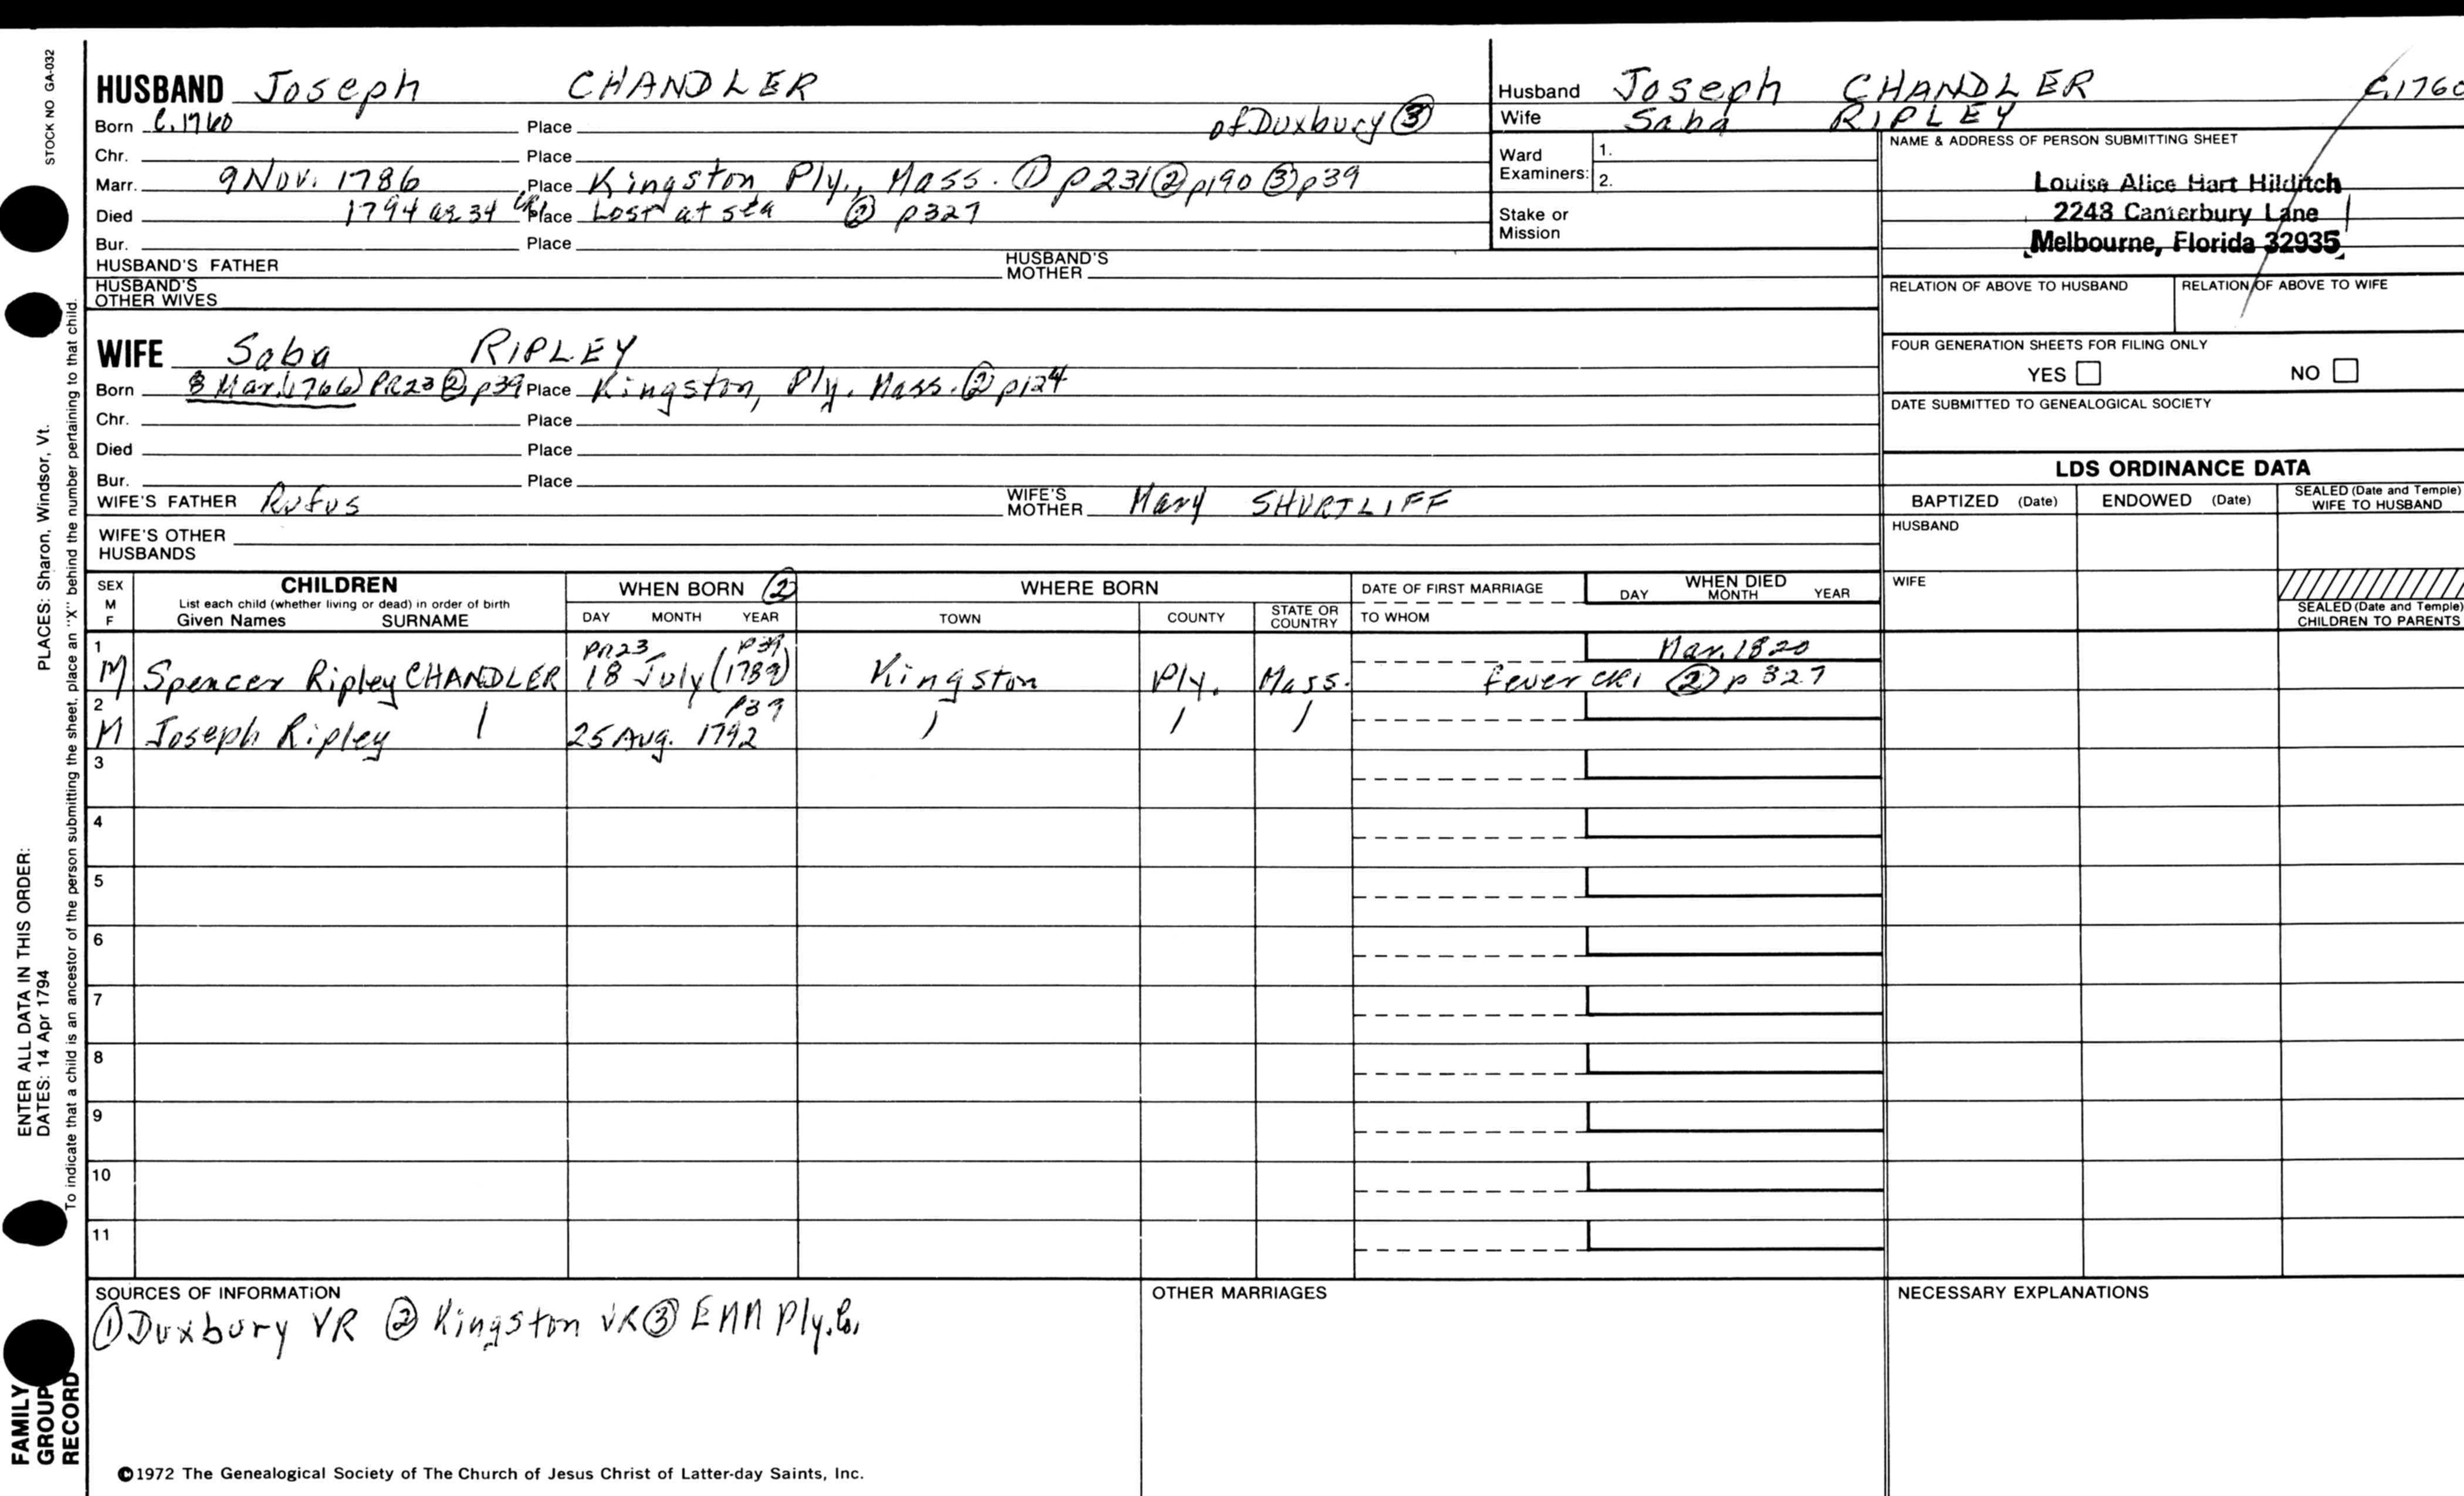 STOCK NO GA-032
HUSBAND Joseph CHANDLER
Born C.1760 Place of Duxbury ③
Chr. Place
Marr. 9 Nov. 1786 Place Kingston Ply., Mass. ① p231 ② p190 ③ p39
Died 1794 ae 34 CR1 Place Lost at sea ② p327
Bur. Place
HUSBAND'S FATHER HUSBAND'S MOTHER
HUSBAND'S OTHER WIVES
WIFE Saba RIPLEY
Born 8 Mar. (1766) PR23 ② p39 Place Kingston, Ply. Mass. ② p124
Chr. Place
Died Place
Bur. Place
WIFE'S FATHER Rufus WIFE'S MOTHER Mary SHURTLIFF
WIFE'S OTHER HUSBANDS
Husband Joseph CHANDLER C.1760
Wife Saba RIPLEY
Ward Examiners: 1.
2.
Stake or Mission
NAME & ADDRESS OF PERSON SUBMITTING SHEET
Louise Alice Hart Hilditch
2243 Canterbury Lane
Melbourne, Florida 32935
RELATION OF ABOVE TO HUSBAND RELATION OF ABOVE TO WIFE
FOUR GENERATION SHEETS FOR FILING ONLY
YES NO
DATE SUBMITTED TO GENEALOGICAL SOCIETY
LDS ORDINANCE DATA
BAPTIZED (Date) ENDOWED (Date) SEALED (Date and Temple) WIFE TO HUSBAND
HUSBAND
WIFE
SEALED (Date and Temple) CHILDREN TO PARENTS
SEX M F CHILDREN WHEN BORN ② WHERE BORN DATE OF FIRST MARRIAGE WHEN DIED
List each child (whether living or dead) in order of birth
Given Names SURNAME DAY MONTH YEAR TOWN COUNTY STATE OR COUNTRY TO WHOM DAY MONTH YEAR
1 PR23 p39 Mar. 1820
M Spencer Ripley CHANDLER 18 July (1789) Kingston Ply. Mass. fever CR1 ② p 327
2 p39
M Joseph Ripley 25 Aug. 1792
3
4
5
6
7
8
9
10
11
SOURCES OF INFORMATION OTHER MARRIAGES NECESSARY EXPLANATIONS
① Duxbury VR ② Kingston VR ③ EMM Ply. Co.
©1972 The Genealogical Society of The Church of Jesus Christ of Latter-day Saints, Inc.
ENTER ALL DATA IN THIS ORDER:
DATES: 14 Apr 1794 PLACES: Sharon, Windsor, Vt.
To indicate that a child is an ancestor of the person submitting the sheet, place an "X" behind the number pertaining to that child.
FAMILY
GROUP
RECORD